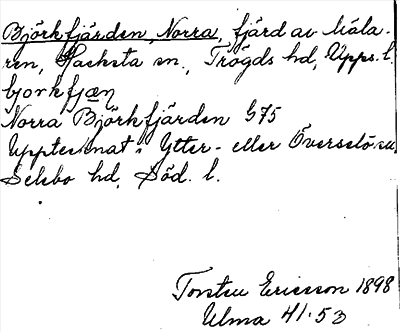 Björkfjärden, Norra, fjärd av Mäla-
ren, Sacksta sn., Trögds hd, Upps. l.
bjorkfjæn
Norra Björkfjärden G75
Upptecknat i Ytter- eller Överselö sn.
Selebo hd, Söd. l.
Torsten Ericsson 1898
Ulma 41:53